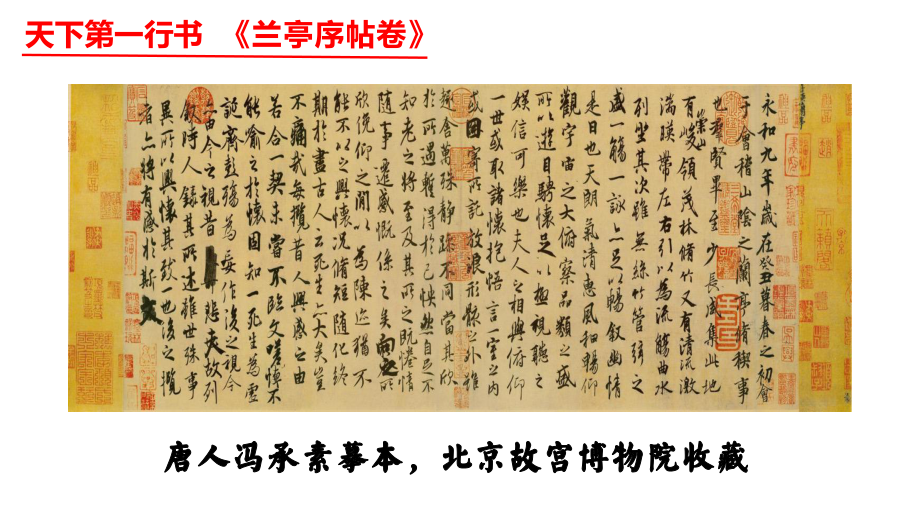 天下第一行书 《兰亭序帖卷》
永和九年歲在癸丑暮春之初會
于會稽山陰之蘭亭脩稧事
也羣賢畢至少長咸集此地
有崇山峻領茂林脩竹又有清流激
湍暎帶左右引以為流觴曲水
列坐其次雖無絲竹管弦之
盛一觴一詠亦足以暢敘幽情
是日也天朗氣清惠風和暢仰
觀宇宙之大俯察品類之盛
所以遊目騁懷足以極視聽之
娛信可樂也夫人之相與俯仰
一世或取諸懷抱悟言一室之內
或因寄所託放浪形骸之外雖
趣舍萬殊靜躁不同當其欣
於所遇暫得於己怏然自足不
知老之將至及其所之既惓情
隨事遷感慨係之矣向之所
欣俛仰之閒以為陳迹猶不
能不以之興懷況脩短隨化終
期於盡古人云死生亦大矣豈
不痛哉每攬昔人興感之由
若合一契未嘗不臨文嗟悼不
能喻之於懷固知一死生為虛
誕齊彭殤為妄作後之視今
亦由今之視昔悲夫故列
敘時人錄其所述雖世殊事
異所以興懷其致一也後之攬
者亦將有感於斯文
唐人冯承素摹本，北京故宫博物院收藏